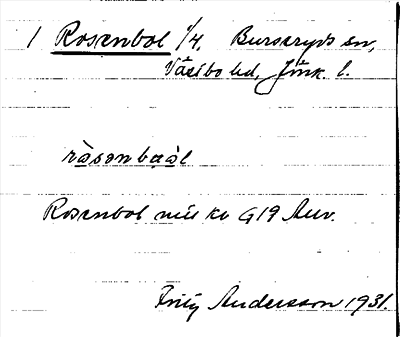 1 Rosenbol 1/4, Burseryds sn,
Västbo hd, Jönk. l.
ròsənbωὰl
Rosenbol
G19
Fritz Andersson 1931.